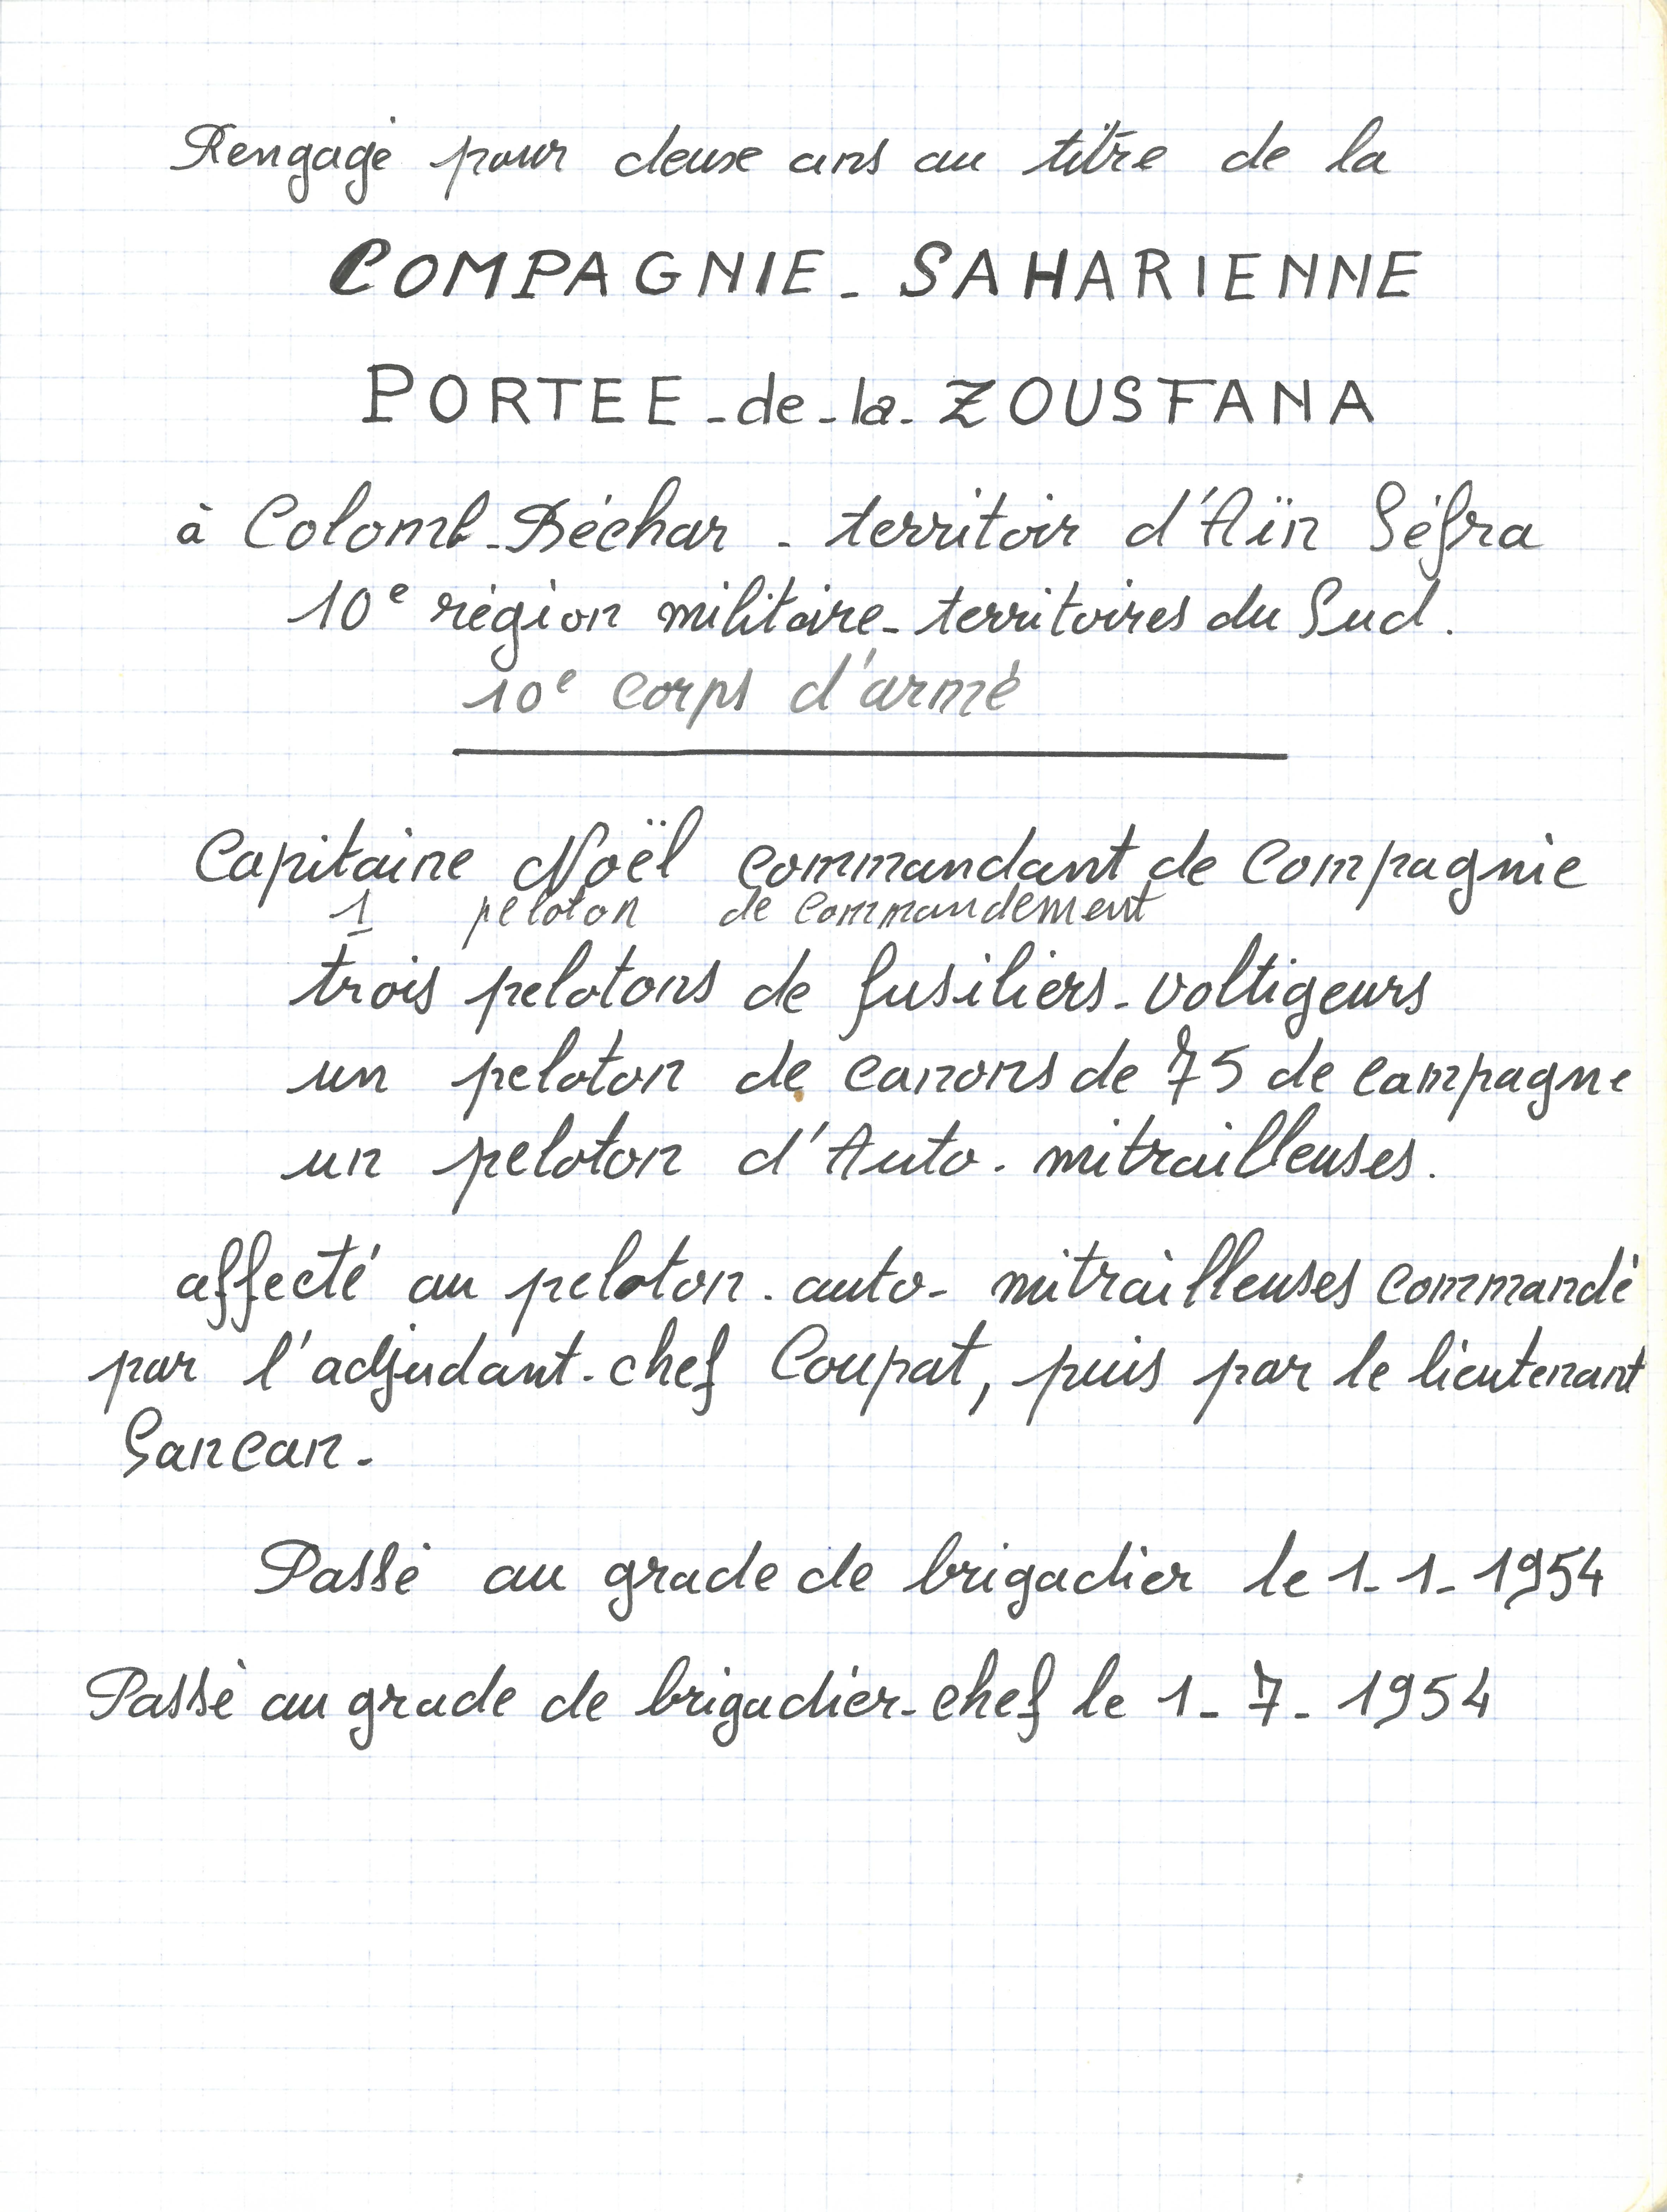 Rengagé pour deux ans au titre de la
COMPAGNIE - SAHARIENNE
PORTEE - de - la - ZOUSFANA
à Colomb-Béchar - territoir d'Aïn Séfra
10e région militaire - territoires du Sud.
10e corps d'armé
Capitaine Noël commandant de Compagnie
1 peloton de commandement
trois pelotons de fusiliers-voltigeurs
un peloton de canons de 75 de campagne
un peloton d'Auto-mitrailleuses.
affecté au peloton-auto-mitrailleuses commandé
par l'adjudant-chef Coupat, puis par le lieutenant
Sancan.
Passé au grade de brigadier le 1-1-1954
Passé au grade de brigadier-chef le 1-7-1954